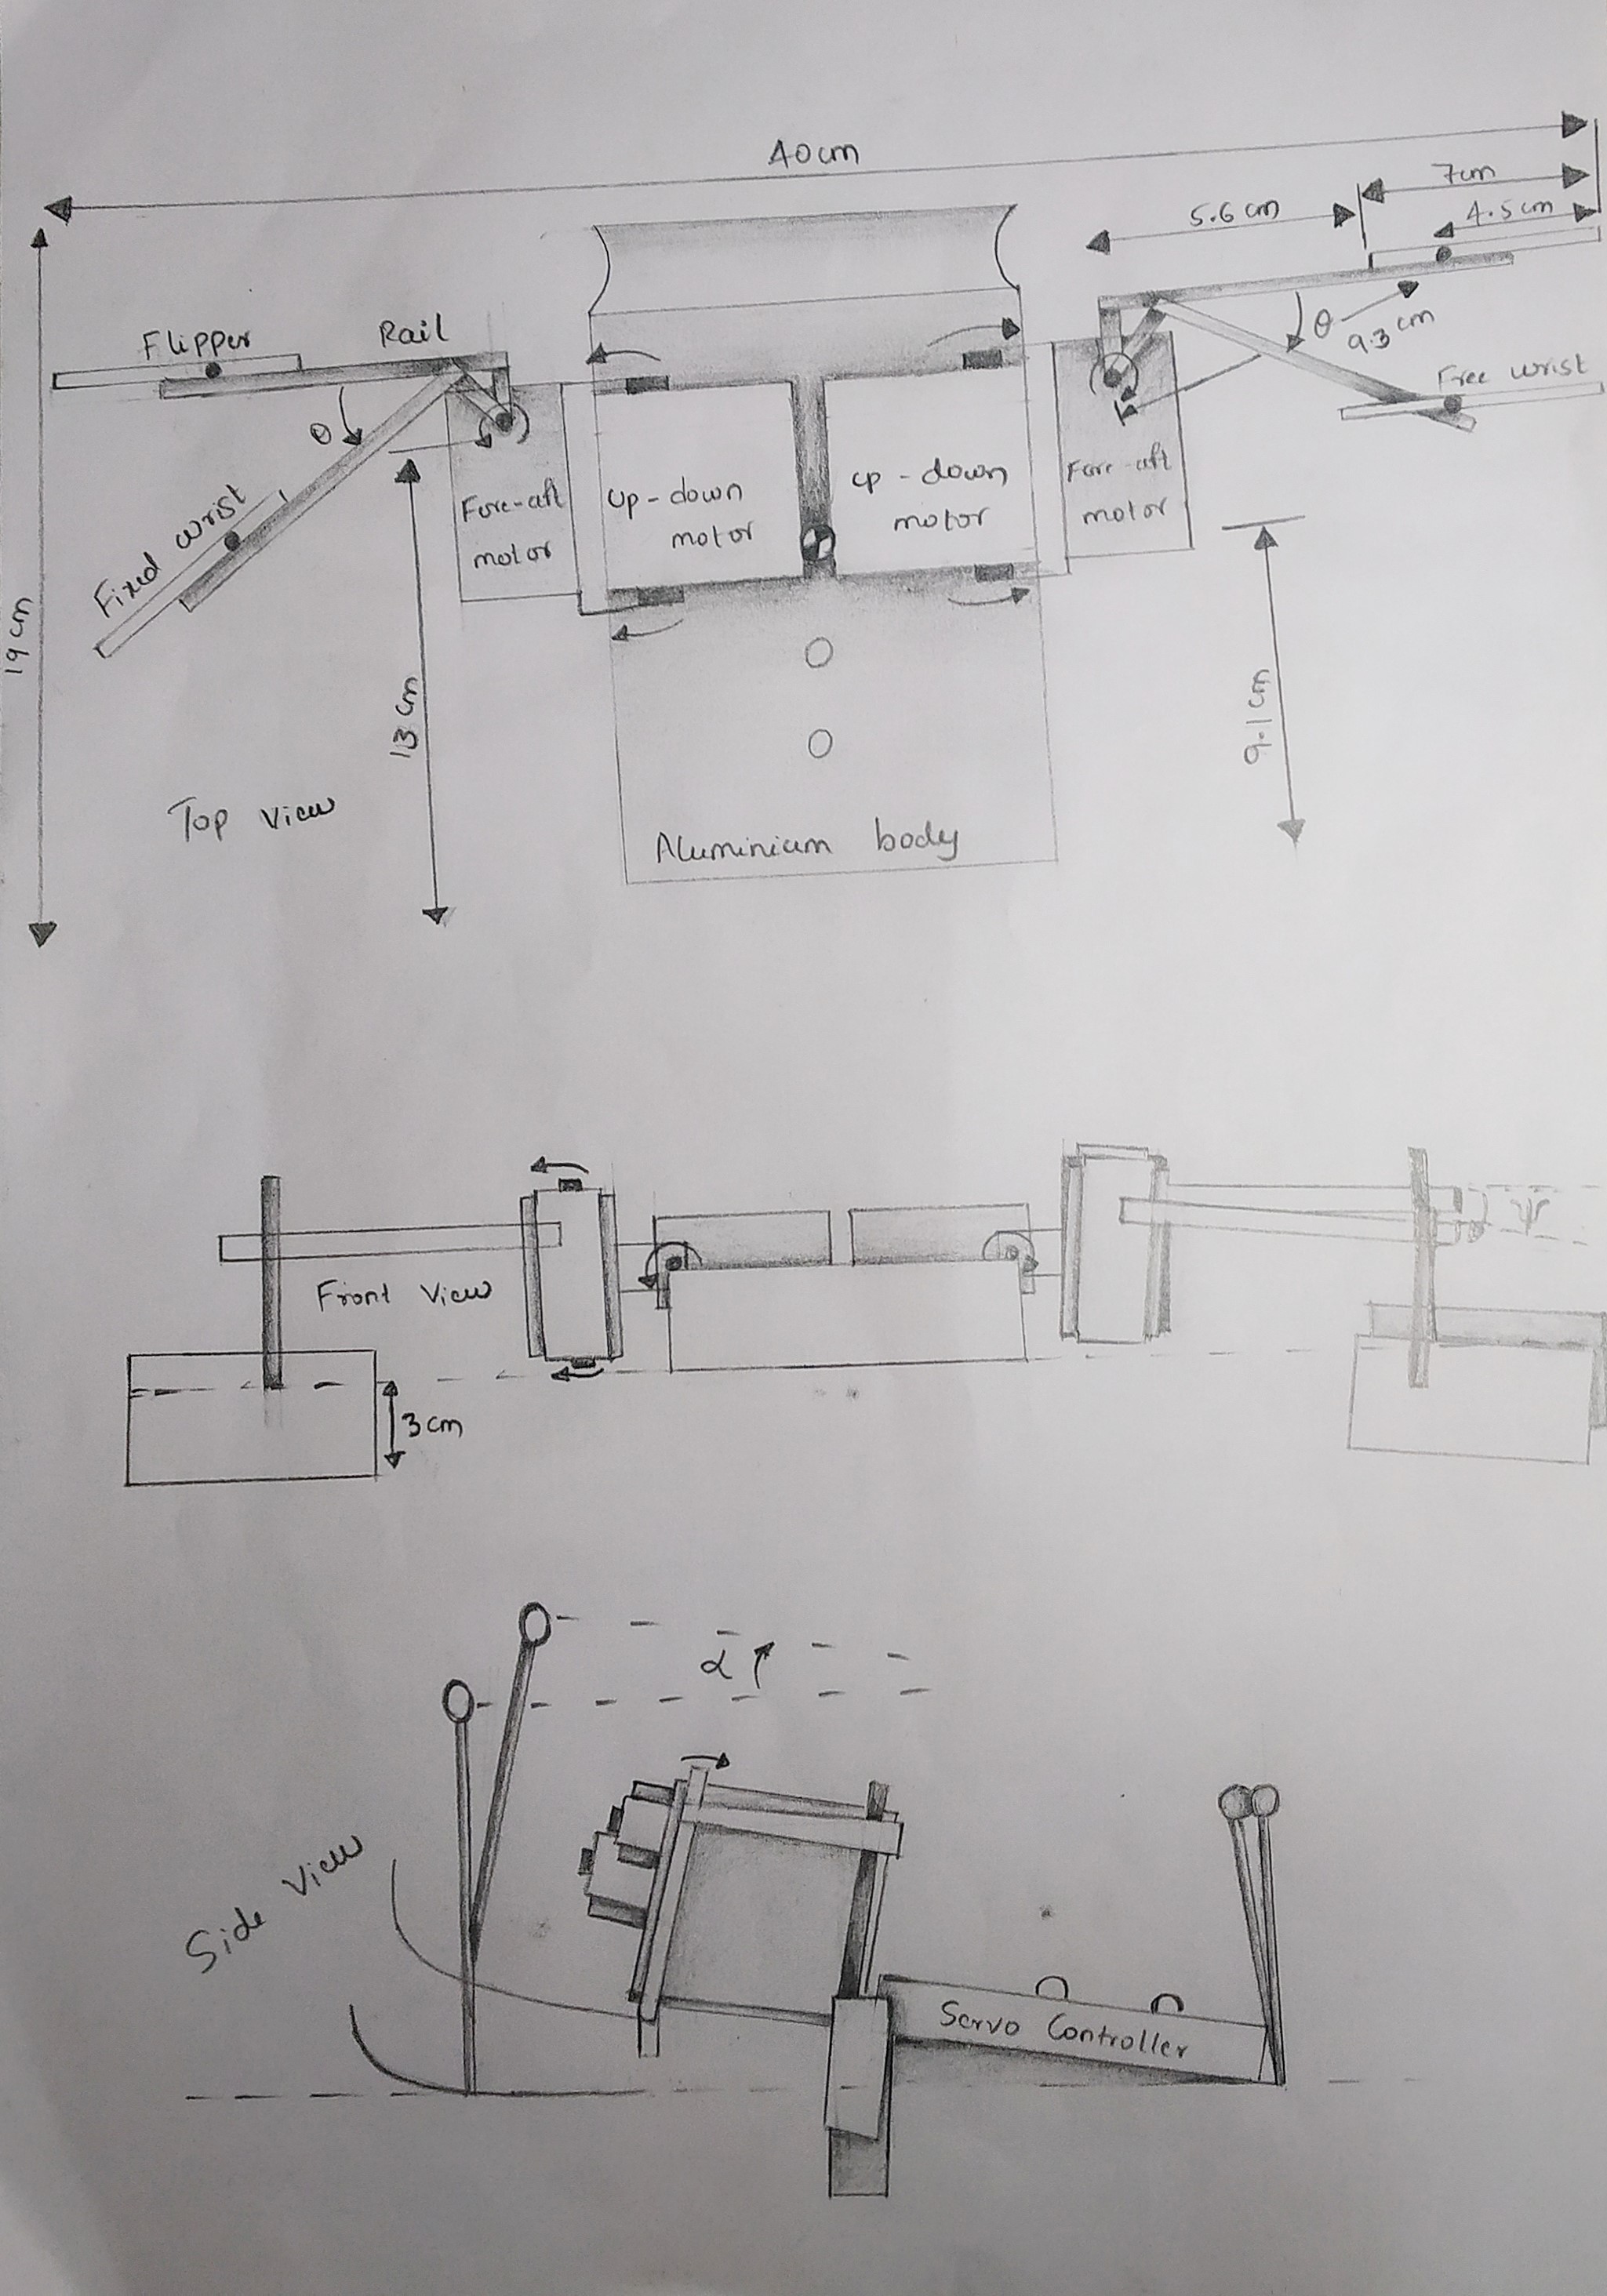 40cm
7cm
5.6 cm
4.5cm
Flipper
Rail
θ
9.3 cm
Free wrist
θ
Fixed wrist
Fore-aft
motor
Up-down
motor
up-down
motor
Fore-aft
motor
19 cm
13 cm
9.1 cm
Top view
Aluminium body
ψ
Front View
3 cm
α
Side View
Servo Controller